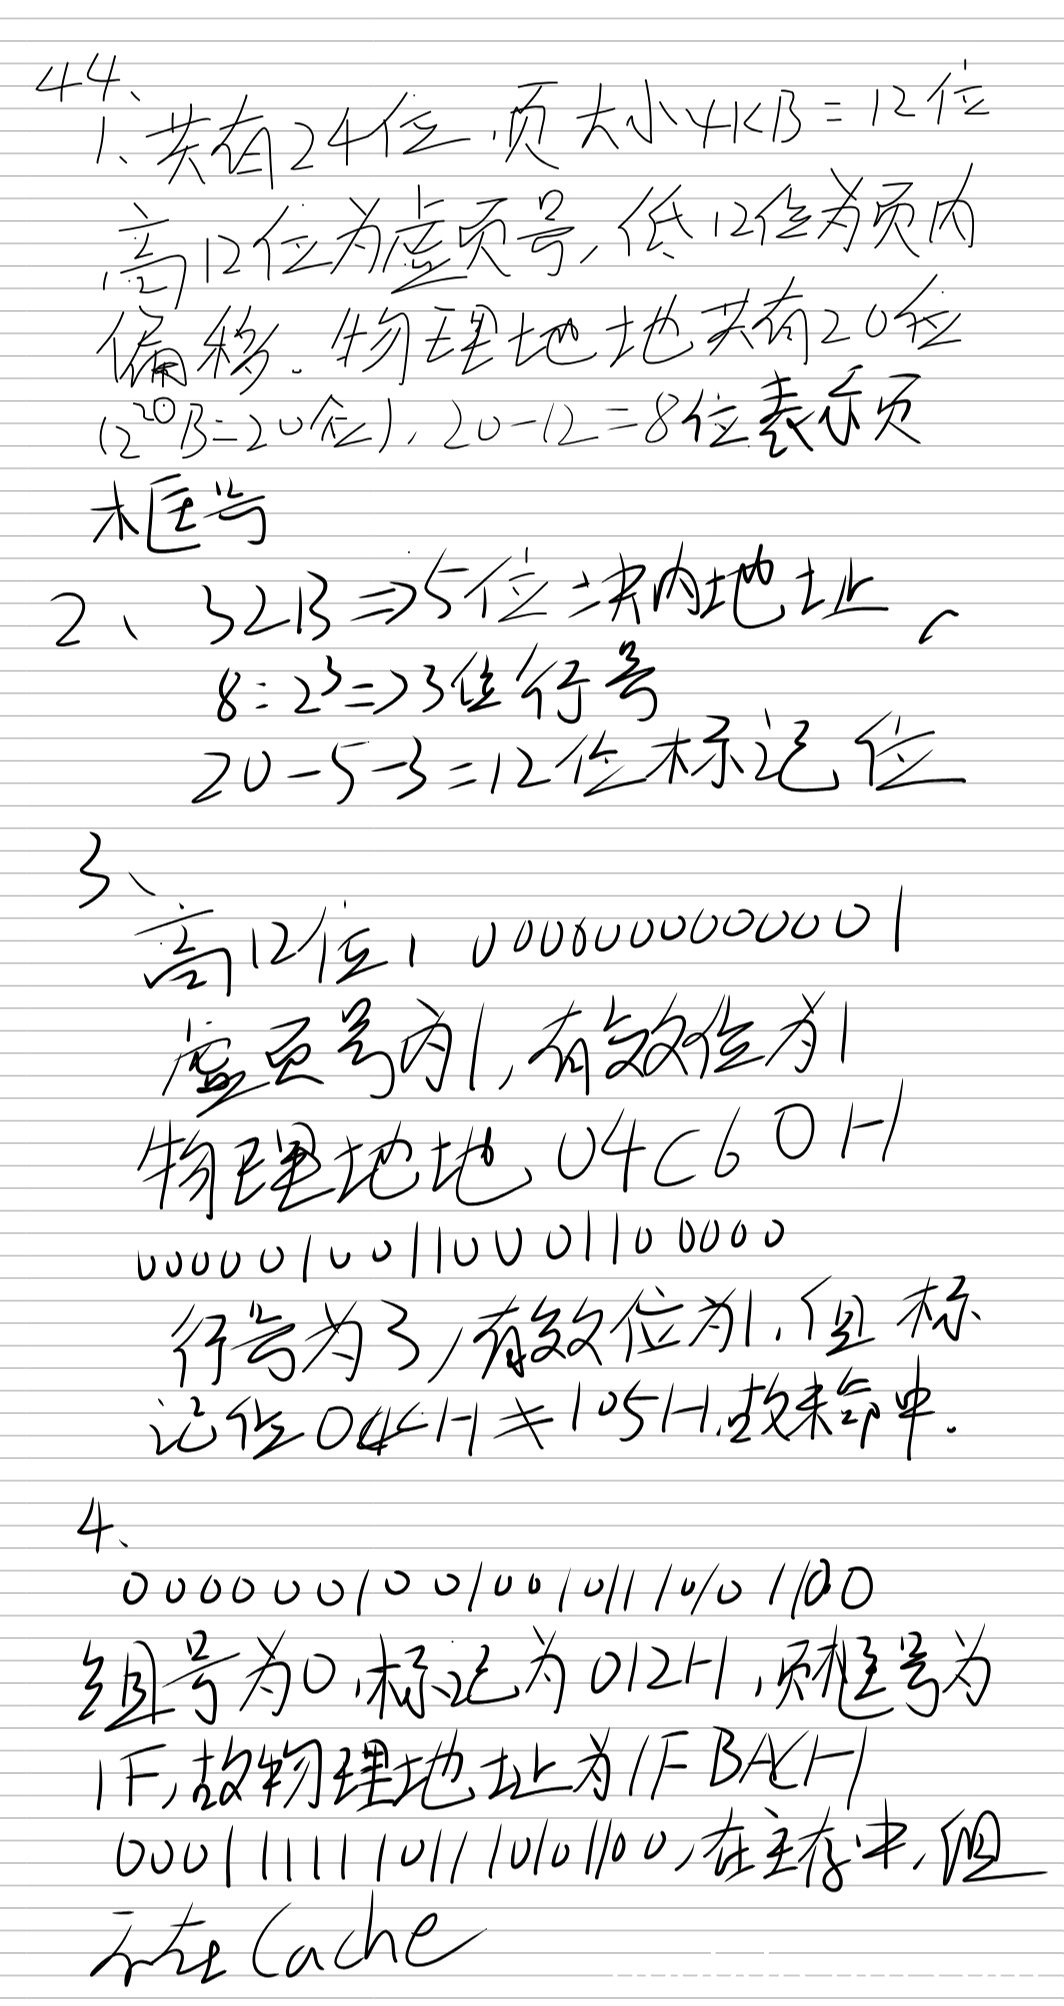 44、
1、共有24位,页大小4KB=12位
高12位为虚页号,低12位为页内
偏移.物理地地共有20位
(2^20B=20位),20-12=8位表示页
框号
2、32B=>5位块内地址,
8=2^3=>3位行号
20-5-3=12位标记位
3、
高12位,000000000001
虚页号为1,有效位为1
物理地地04C60H
00000100110001100000
行号为3,有效位为1,但标
记位04CH≠105H,故未命中.
4、
000000100100101110101100
组号为0,标记为012H,页框号为
1F,故物理地址为1FBACH
00011111101110101100,在主存中,但
不在Cache